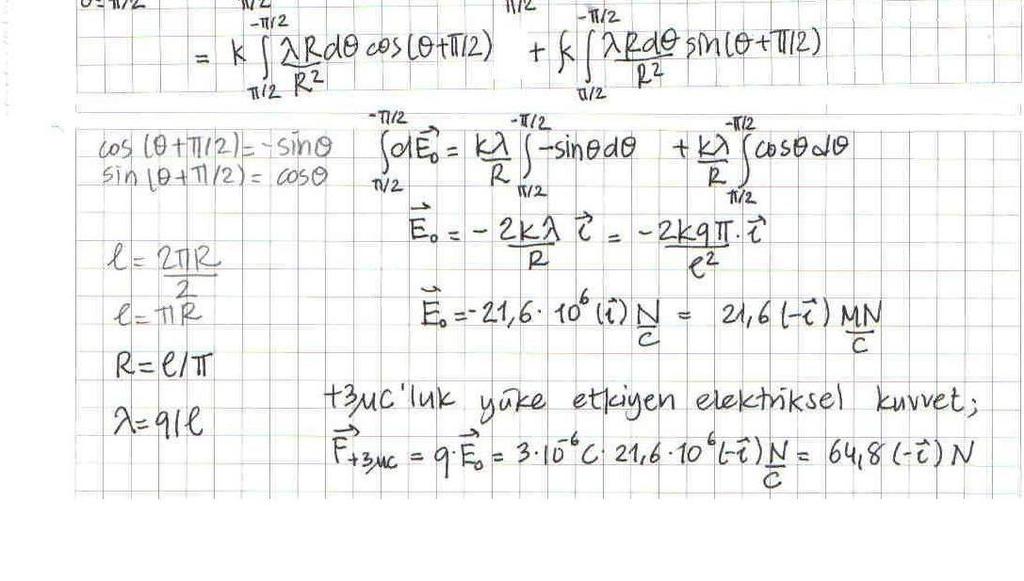 θ=π/2 π/2 π/2
= k ∫_{π/2}^{-π/2} λRdθ/R² cos(θ+π/2) + k ∫_{π/2}^{-π/2} λRdθ/R² sin(θ+π/2)
cos(θ+π/2)=-sinθ
sin(θ+π/2)= cosθ
∫_{π/2}^{-π/2} dE⃗₀ = kλ/R ∫_{π/2}^{-π/2} -sinθdθ + kλ/R ∫_{π/2}^{-π/2} cosθdθ
E⃗₀ = - 2kλ/R i⃗ = -2kqπ/ℓ² · i⃗
ℓ = 2πR/2
ℓ = πR
E⃗₀ = -21,6·10⁶ (i⃗) N/C = 21,6 (-i⃗) MN/C
R=ℓ/π
λ=q/ℓ
+3μC'luk yüke etkiyen elektriksel kuvvet;
F⃗+3μC = q·E⃗₀ = 3·10⁻⁶C· 21,6·10⁶(-i⃗) N/C = 64,8 (-i⃗) N